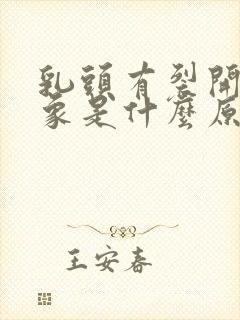 乳頭有裂開
象是什麼原
王安春